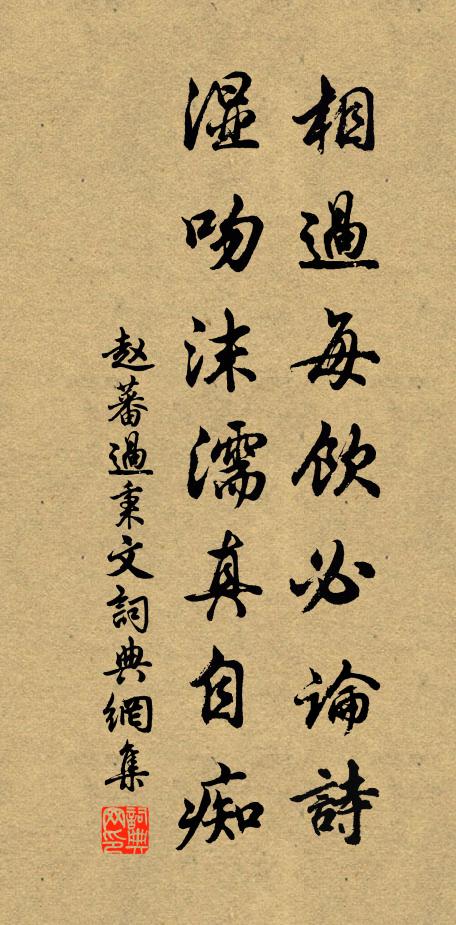 相過每飲必論詩
湿吻沫濡真自痴
赵蕃過秉文詞典網集
詞典网印